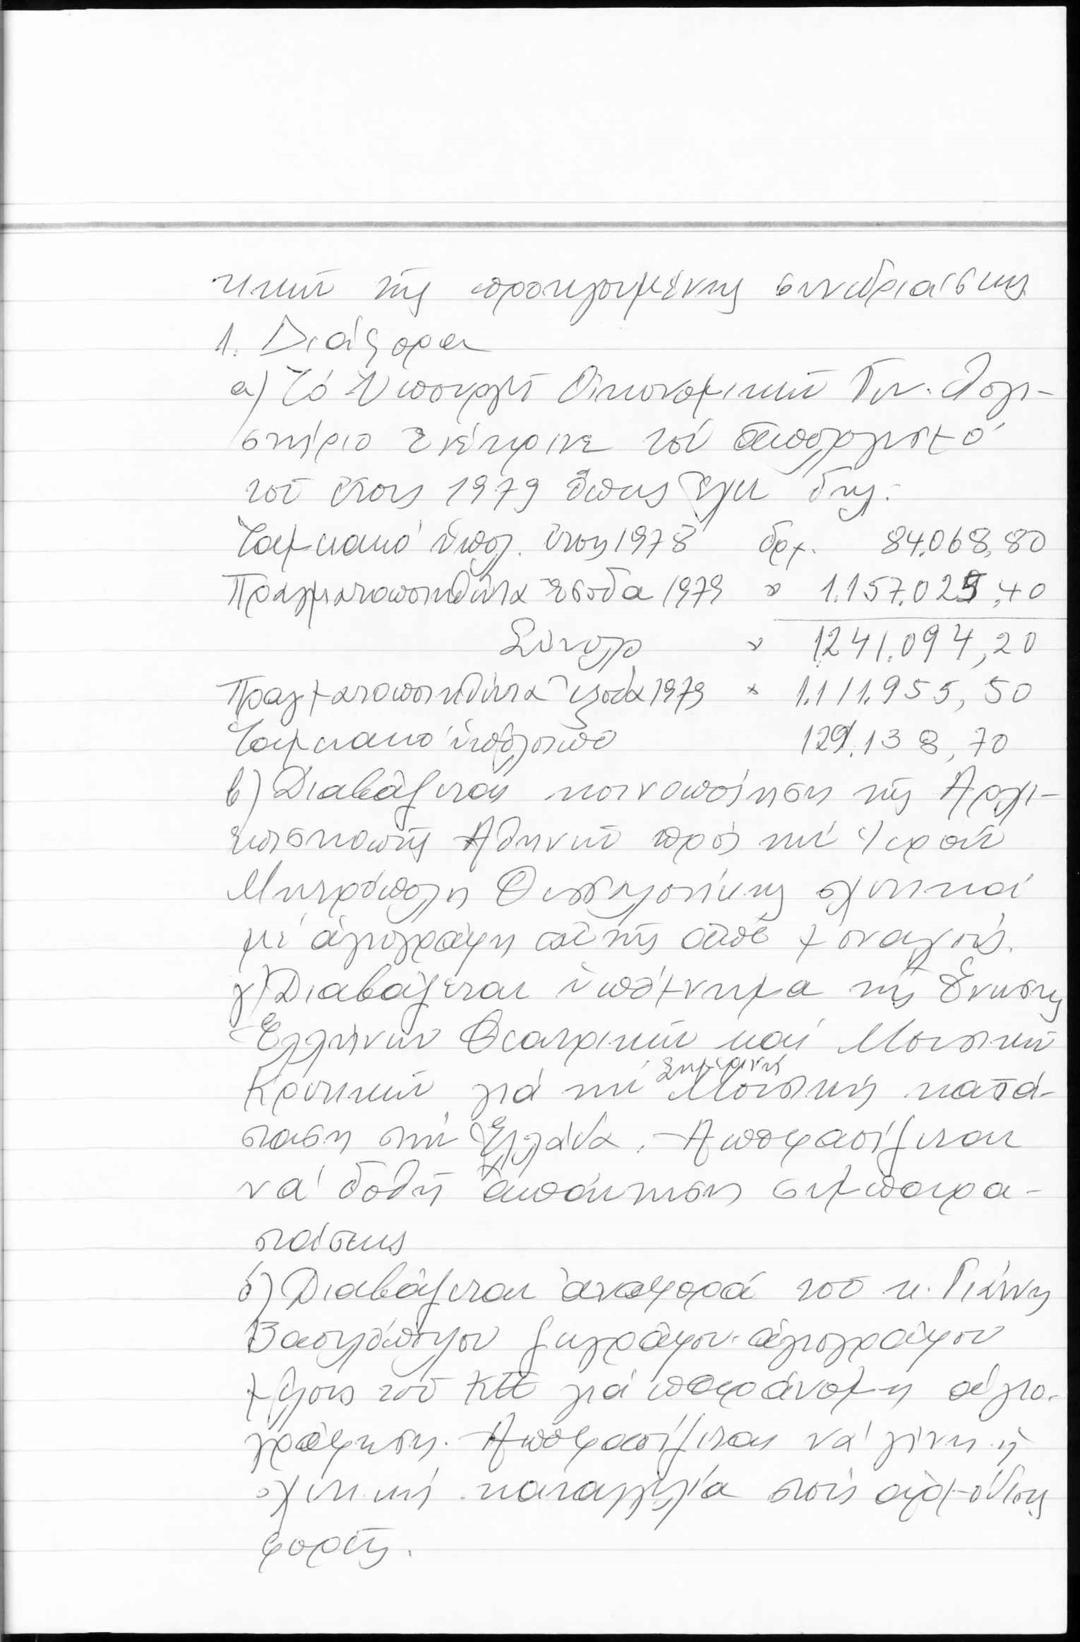 τικῶν τῆς προηγουμένης συνεδριάσεως
1. Διάφορα
α) Τό Ὑπουργεῖο Οἰκονομικῶν Γεν. Λογι-
στήριο ἐνέκρινε τόν ἀπολογισμό
τοῦ ἔτους 1979 ὅπως ἔχει δηλ.
Ταμειακό ὑπολ. ἔτους 1978 δρχ. 84.068,80
Πραγματοποιηθέντα ἔσοδα 1979 » 1.157.025,40
Σύνολο » 1241.094,20
Πραγματοποιηθέντα ἔξοδα 1979 » 1.111.955,50
Ταμειακό ὑπόλοιπο 129.138,70
β) Διαβάζεται κοινοποίηση τῆς Ἀρχι-
επισκοπῆς Ἀθηνῶν πρός τήν Ἱεράν
Μητρόπολη Θεσσαλονίκης σχετικά
μέ ἁγιογράφηση ἀπό μοναχούς.
γ) Διαβάζεται ὑπόμνημα τῆς Ἑνώσεως
Ἑλλήνων Θεατρικῶν καί Μουσικῶν
Κριτικῶν γιά τήν σημερινή Μουσική κατά-
σταση στήν Ἑλλάδα. Ἀποφασίζεται
νά δοθῆ ἀπάντηση συμπαρα-
στάσεως
δ) Διαβάζεται ἀναφορά τοῦ κ. Γιάννη
Βασιλόπουλου ζωγράφου-ἁγιογράφου
μέλους τοῦ ΚΕΕ γιά παράνομη ἁγιο-
γράφηση. Ἀποφασίζεται νά γίνη ἡ
σχετική καταγγελία στούς ἁρμόδιους
φορεῖς.